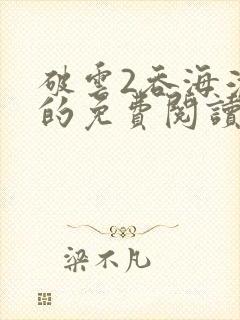 破雲2吞海淮
的免費閱讀
梁不凡